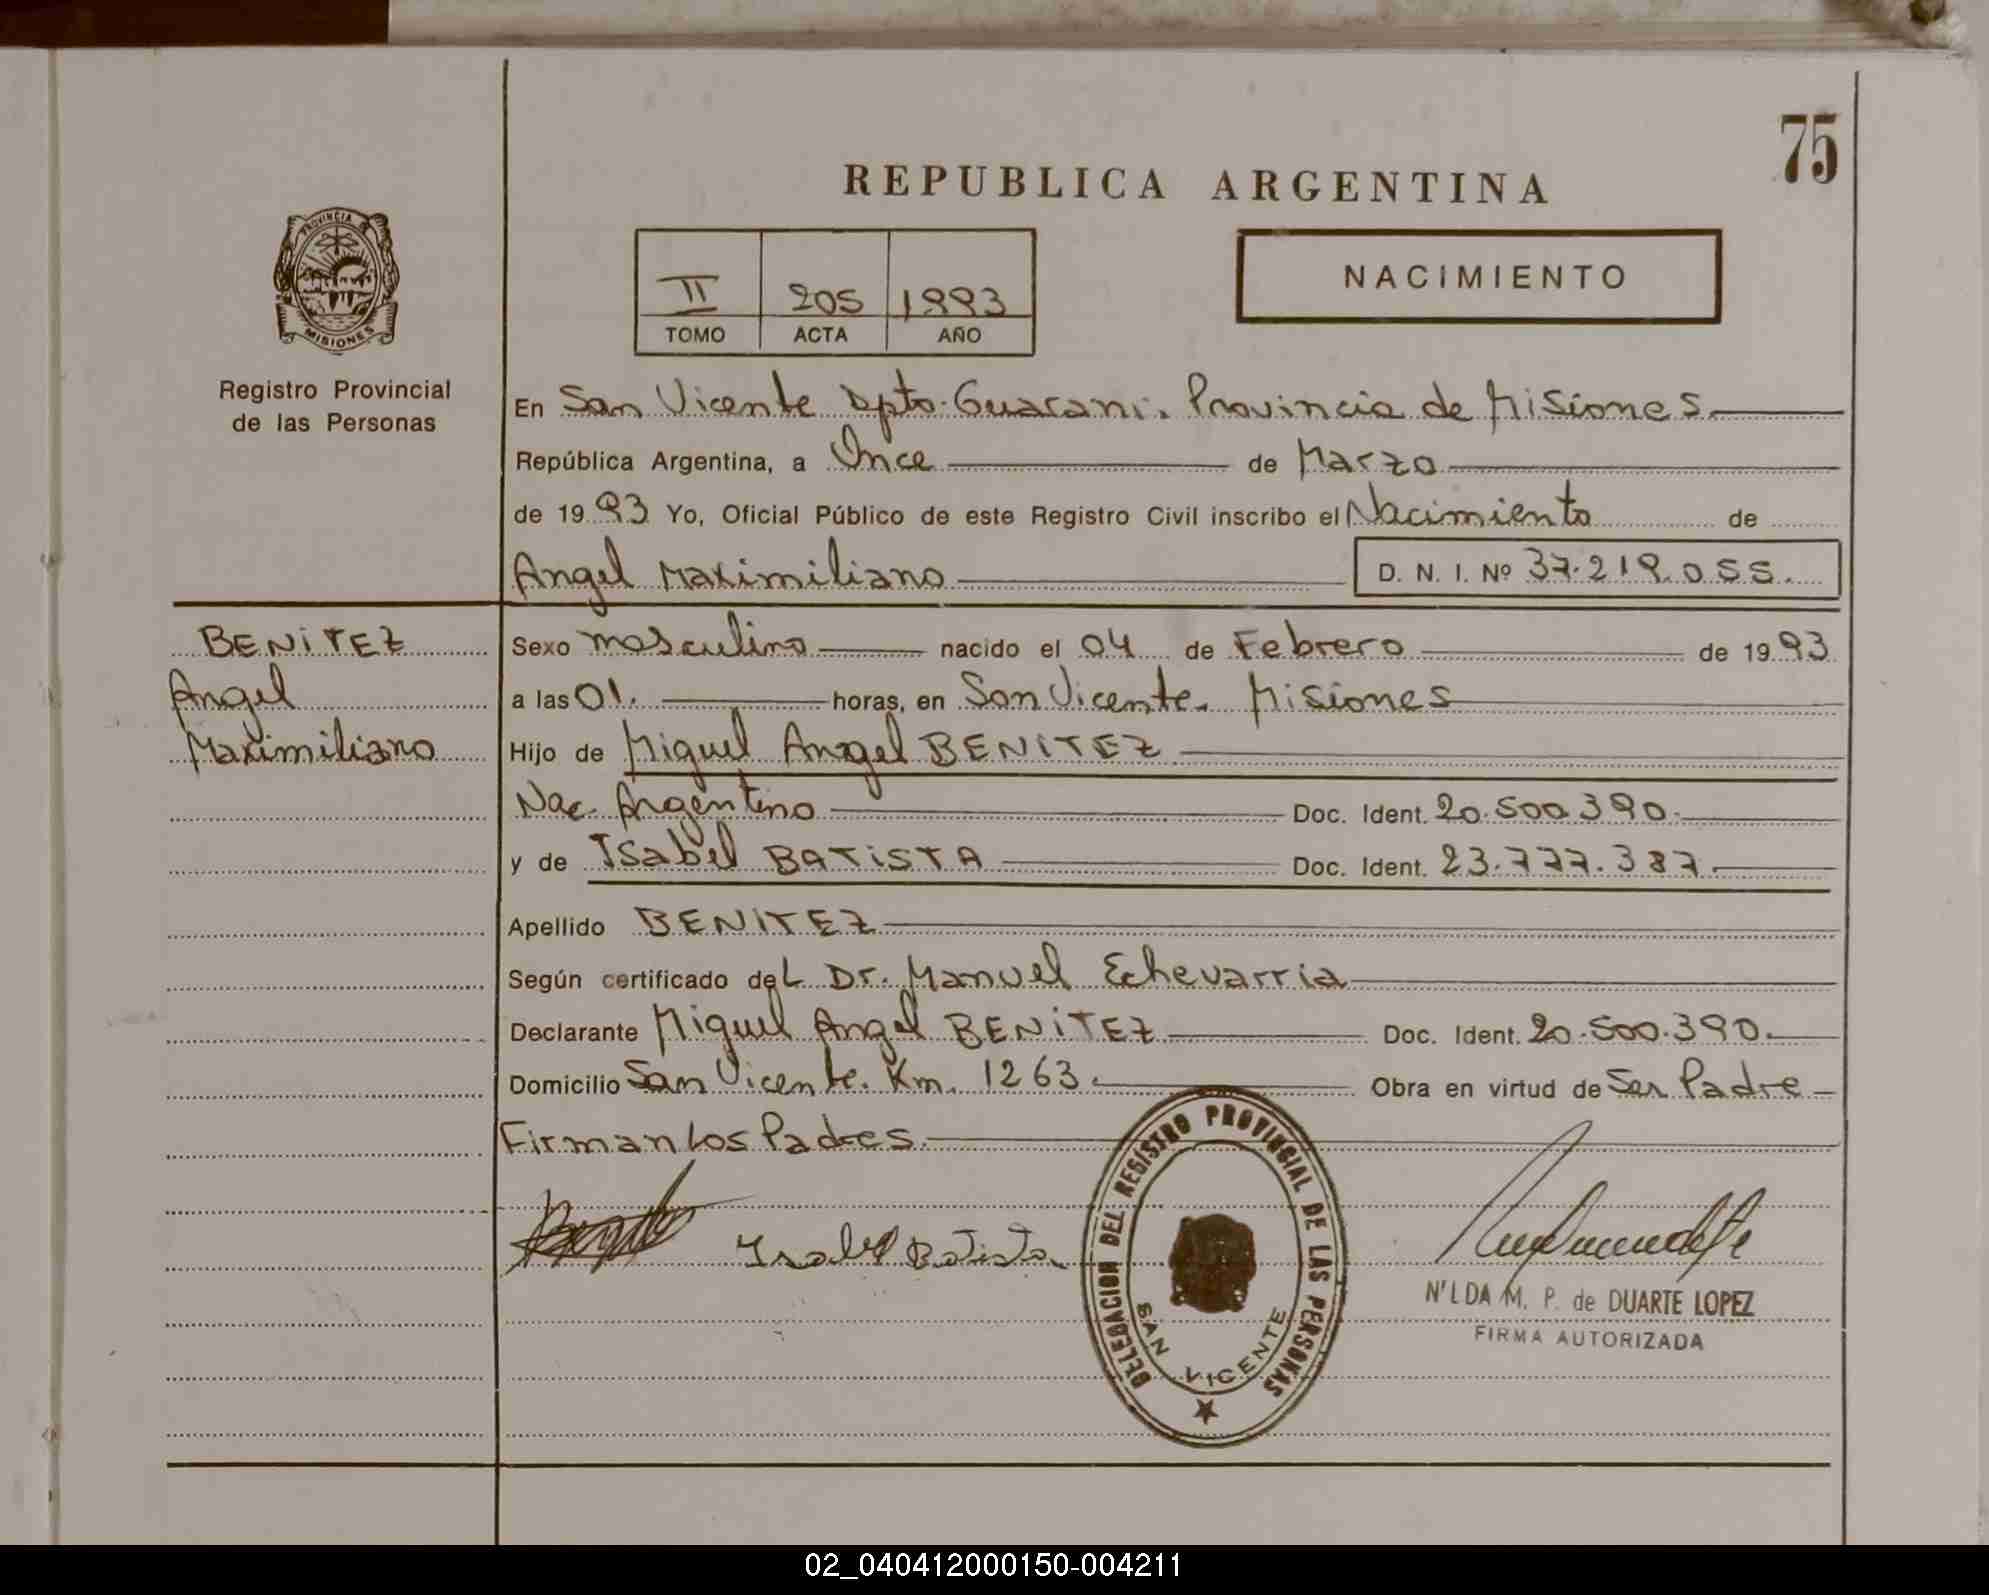 75
REPUBLICA ARGENTINA
PROVINCIA
MISIONES
Registro Provincial
de las Personas
II 205 1993
TOMO ACTA AÑO
NACIMIENTO
En San Vicente Dpto. Guarani. Provincia de Misiones.
República Argentina, a Once de Marzo
de 1993 Yo, Oficial Público de este Registro Civil inscribo el Nacimiento de
Angel Maximiliano D. N. I. Nº 37.219.055.
BENITEZ
Angel
Maximiliano
Sexo masculino nacido el 04 de Febrero de 1993
a las 01. horas, en San Vicente. Misiones
Hijo de Miguel Angel BENITEZ
Nac. Argentino Doc. Ident. 20.500.390.
y de Isabel BATISTA Doc. Ident. 23.777.387.
Apellido BENITEZ
Según certificado del Dr. Manuel Echevarria
Declarante Miguel Angel BENITEZ Doc. Ident. 20.500.390.
Domicilio San Vicente. Km. 1263. Obra en virtud de Ser Padre
Firman Los Padres.
Isabel Batista
DELEGACION DEL REGISTRO PROVINCIAL DE LAS PERSONAS
SAN VICENTE
N'LDA M. P. de DUARTE LOPEZ
FIRMA AUTORIZADA
02_040412000150-004211